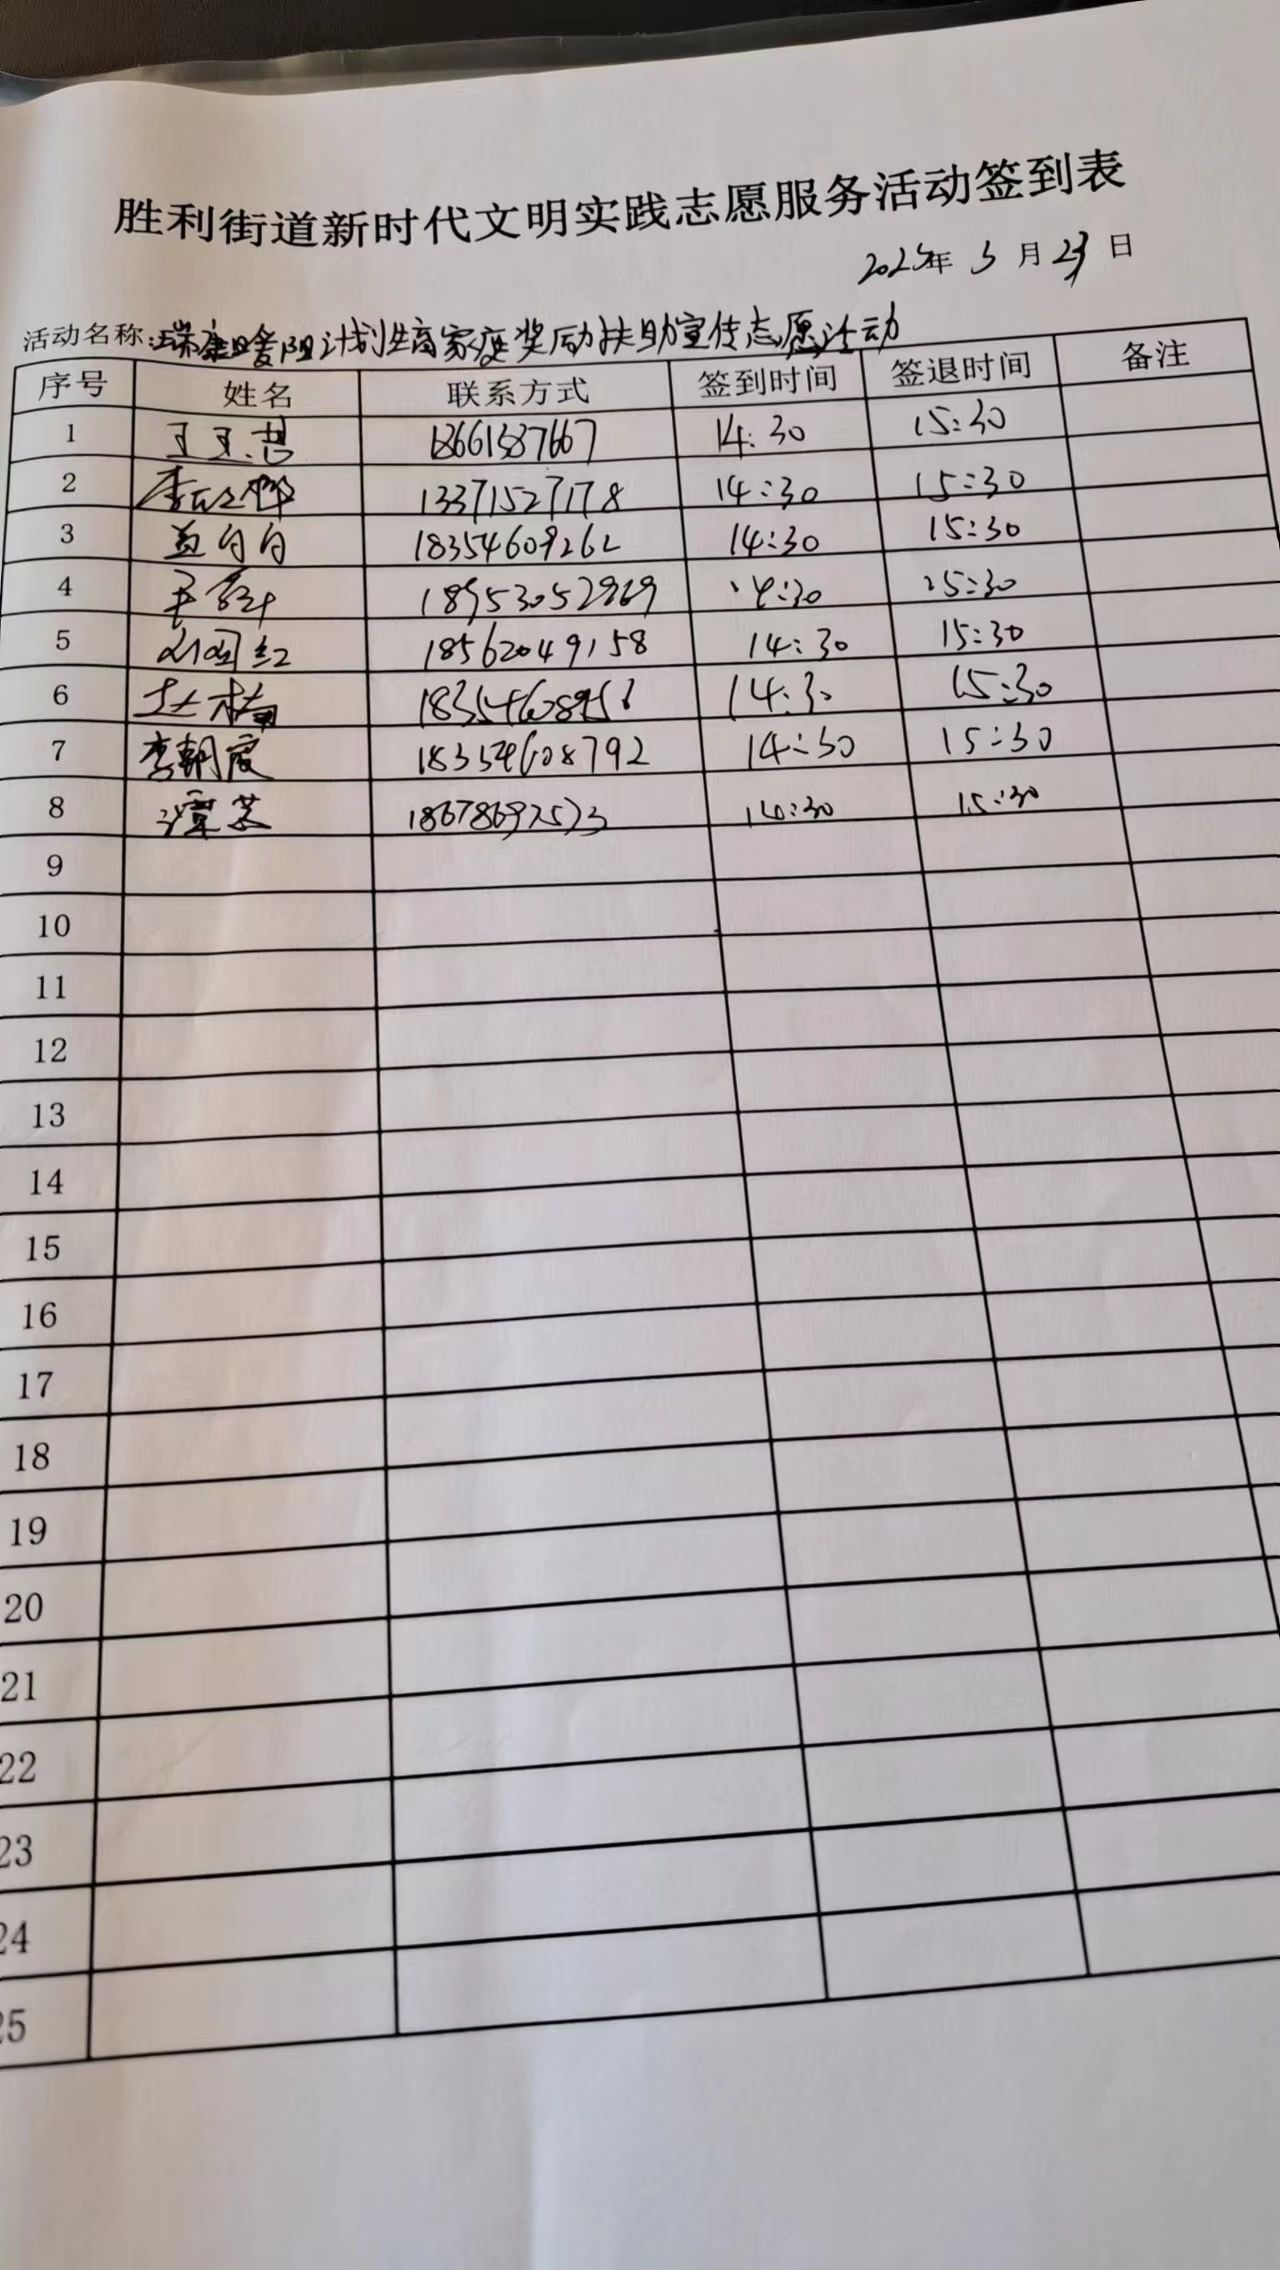 胜利街道新时代文明实践志愿服务活动签到表
2025年 5 月 23 日
活动名称:瑞康暖阳计划生育家庭奖励扶助宣传志愿活动
序号 姓名 联系方式 签到时间 签退时间 备注
1 14:30 15:30
2 13371527178 14:30 15:30
3 18354609262 14:30 15:30
4 18953052969 14:30 15:30
5 18562049158 14:30 15:30
6 14:30 15:30
7 李朝霞 18354608792 14:30 15:30
8 14:30 15:30
9
10
11
12
13
14
15
16
17
18
19
20
21
22
23
24
25